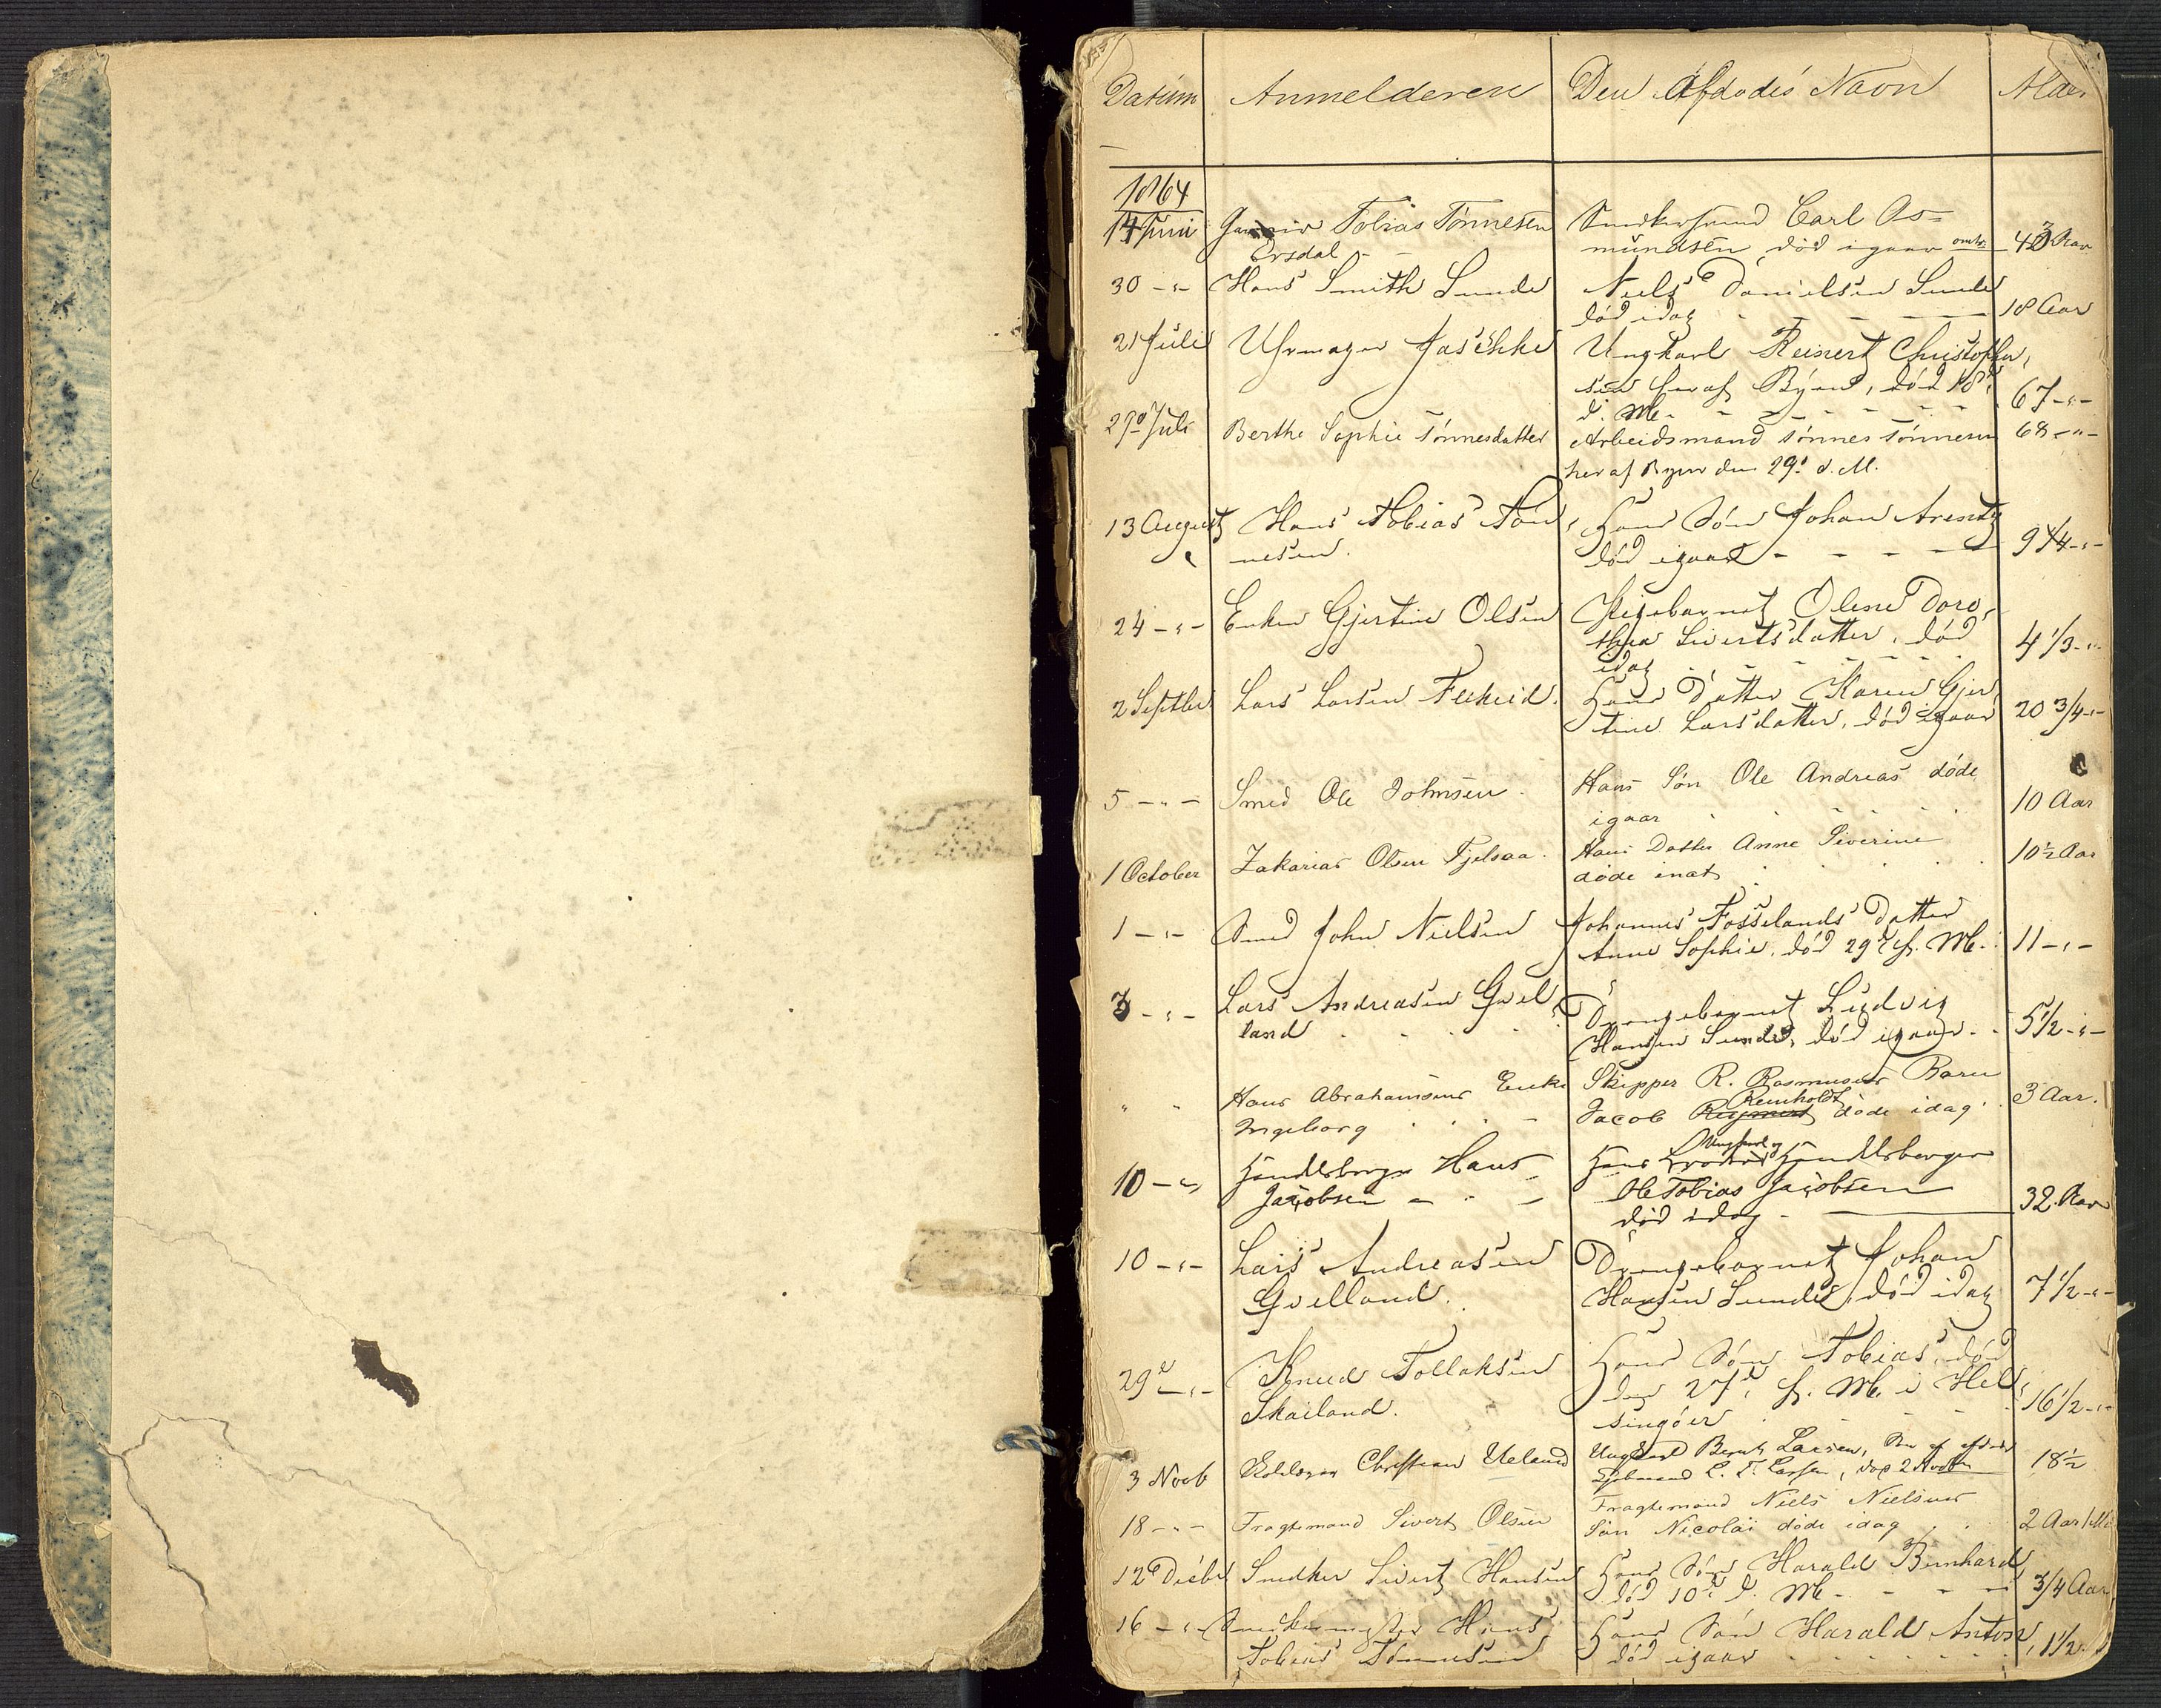 Datum Anmelderen Den Afdødes Navn Alder
1864
14 Juni Tobias Tønnesen Snedkersvend Carl As=
Ersdal - mundsen død igaar omtr. 43 Aar
30 -"- Hans Smith Sunde Niels Danielsen Sunde
død idag - 18 Aar
21 Juli Uhrmager Jaschke Ungkarl Reinert Christopher,
sen her af Byen, død 18d
d. M. - 67 -"-
29d Juli Berthe Sophie Tønnesdatter Arbeidsmand Tønnes Tønnesen 68 -"-
her af Byen den 29d d. M.
13 August Hans Tobias Tøn, Hans Søn Johan Arentz
nesen. død igaar - - - - 9 1/4 -"-
24 -"- Enken Gjertine Olsen Pigebarnet Olene Doro,
thea Sivertsdatter, død
idag - - - 4 1/3 -"-
2 Septbr. Lars Larsen Fekeid. Hans Datter Karen Gjer,
tine Larsdatter, død igaar 20 3/4 -"-
5 -"- Smed Ole Johnsen. Hans Søn Ole Andreas døde
igaar 10 Aar
1 October Zakarias Olsen Fjelsaa. Hans Datter Anne Siverine
døde inat 10 1/2 Aar
1 -"- Smed John Nielsen Johannes Fosselands Datter
Anne Sophie, død 29d f. M. 11 -"-
3 -"- Lars Andreasen Gvel, Drengebarnet Ludvig
land Hansen Sunde, død igaar - 5 1/2 -"-
" " Hans Abrahamsens Enke Skipper R. Rasmusens Barn
Ingeborg Jacob Reinholdt døde idag 3 Aar.
10 -"- Handelsborger Hans Hans Broder Ungkarl og Handelsborger
Jacobsen - - - Ole Tobias Jacobsen
død idag - 32 Aar
10 -"- Lars Andreasen Drengebarnet Johan
Gvelland. Hansen Sunde, død idag 7 1/2 -"-
29d -"- Knud Tollaksen Hans Søn Tobias, død
Skailand. den 27d f. M. i Hel,
singøer 16 1/2 -"-
3 Novb Christian Ueland Ungkarl Bernt Larsen, Søn af afdøde
L. T. Larsen, død 2 Novbr 18 1/2
18 -"- Fragtemand Sivert Olsen Fragtemand Niels Nielsens
Søn Nicolai døde idag 2 Aar 1 Md
12d Decbr Snedker Sivert Hansen Hans Søn Harald Bernhard
død 10d d. M. - - - 3/4 Aar
16 -"- Snedkermester Hans Hans Søn Harald Anton,
Tobias Tønnesen død igaar 1 1/2.